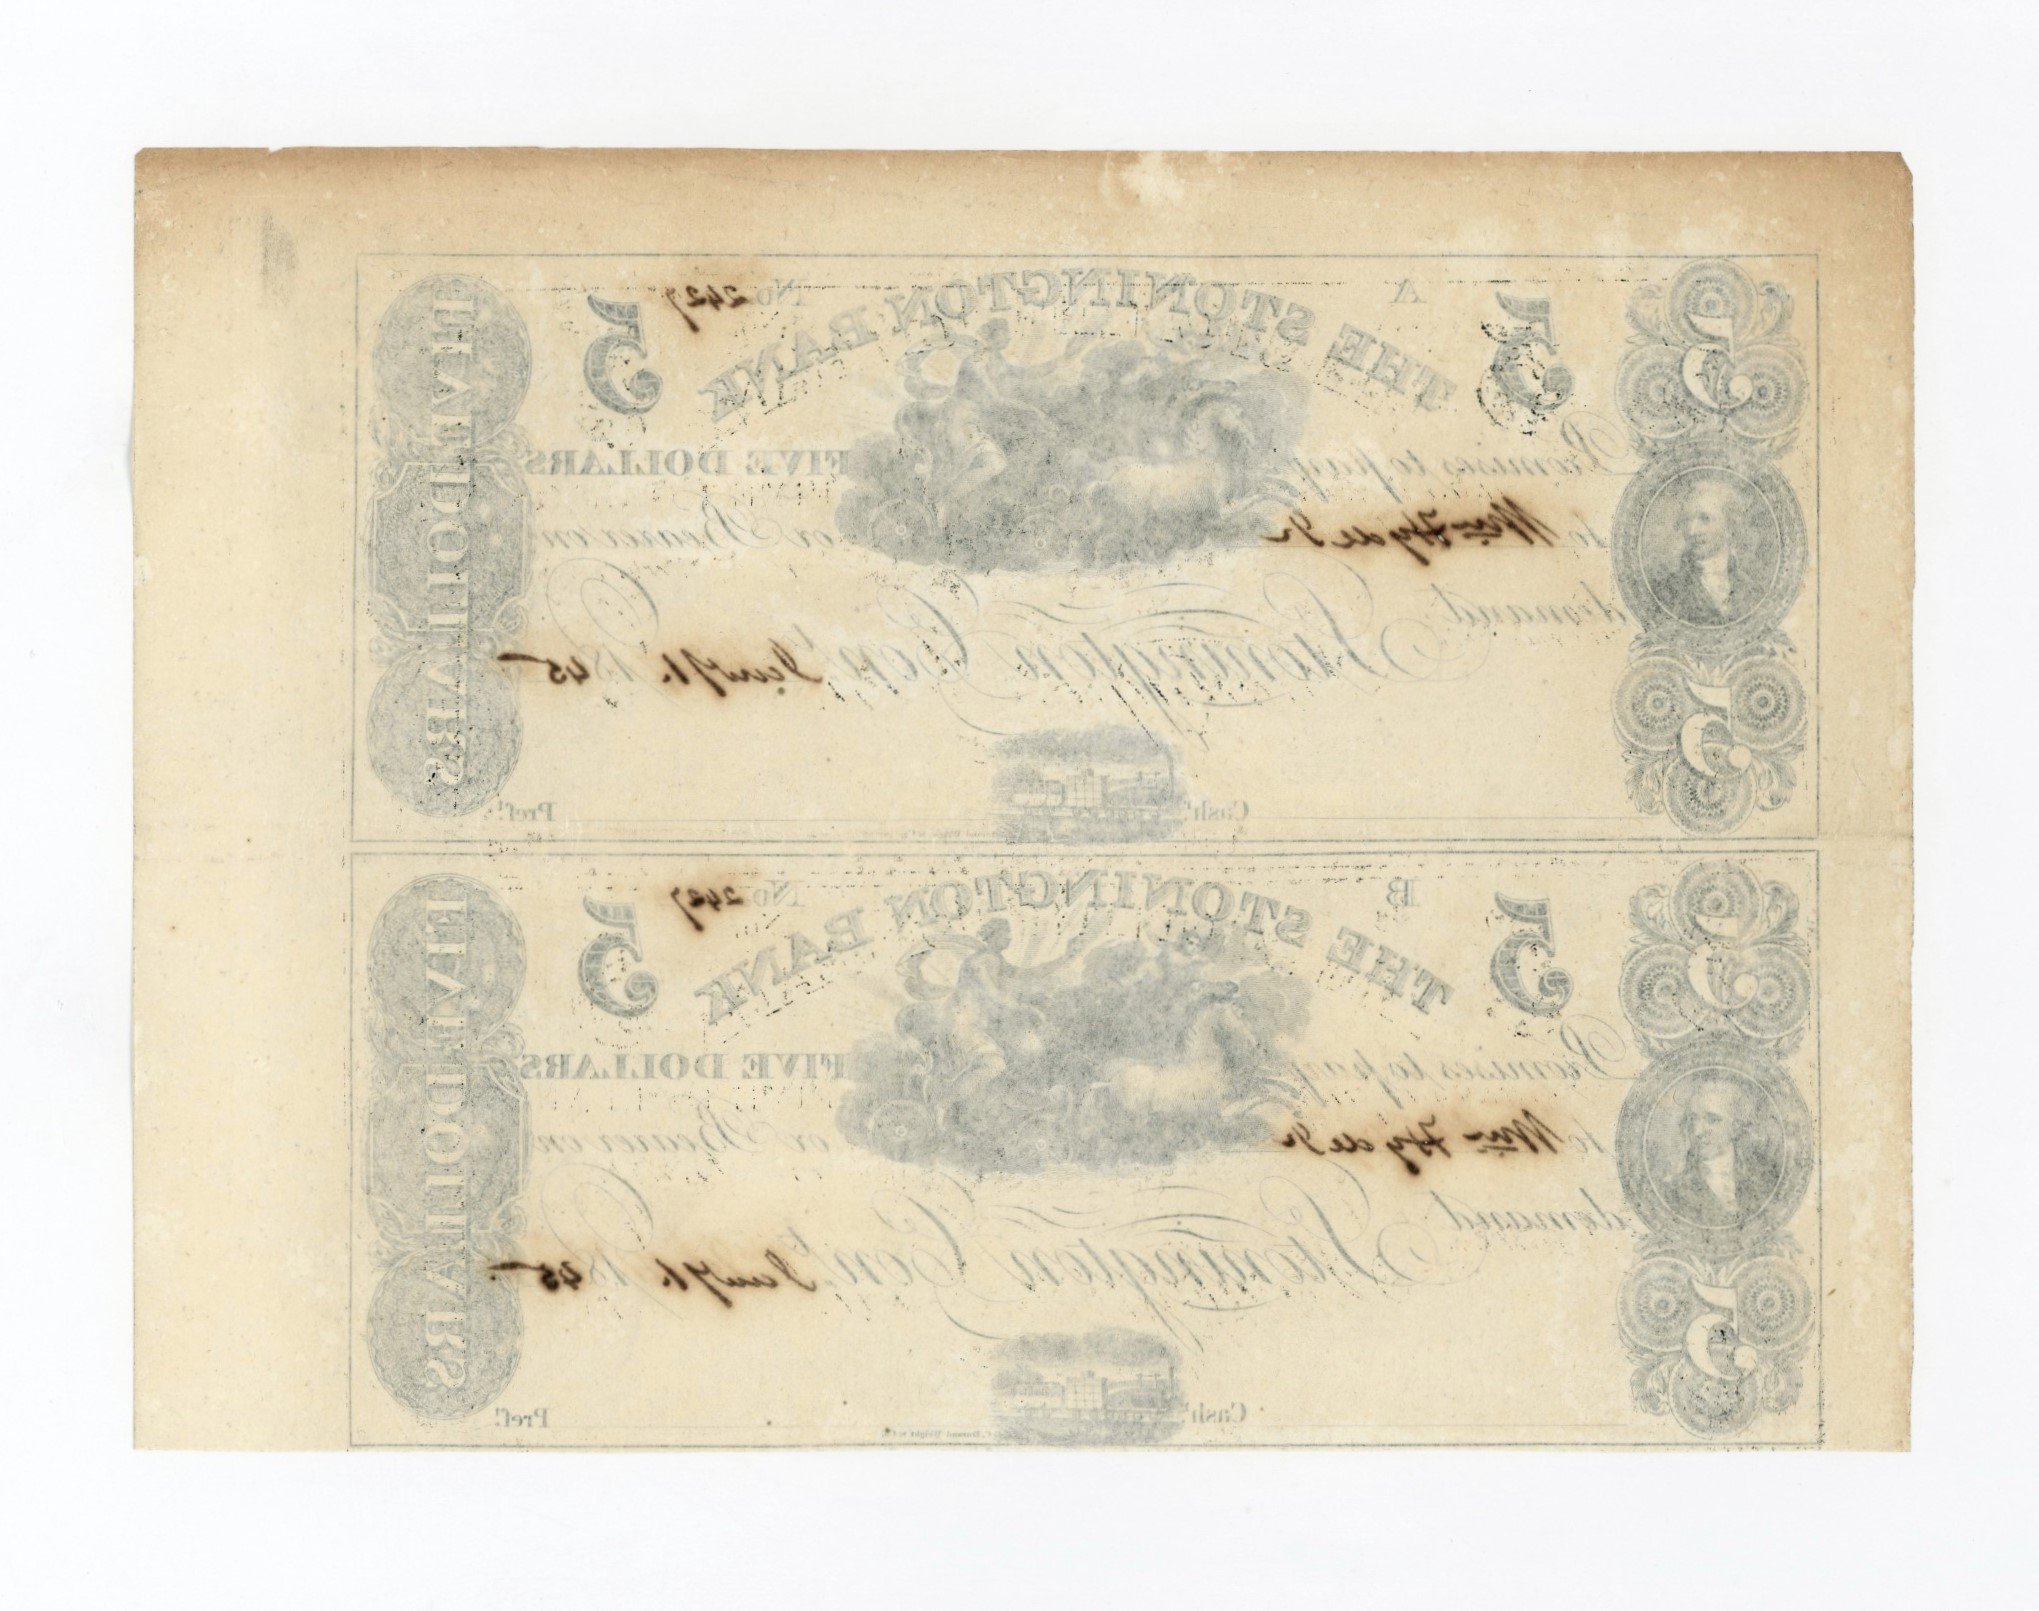 THE STONINGTON BANK
A
No 2427
5
5
5
Promises to pay FIVE DOLLARS
to Wm Hyde Jr or Bearer on
demand
Stonington Cont. Jany 1. 1845
5
Cashr.
Prest.
FIVE DOLLARS
THE STONINGTON BANK
B
No 2427
5
5
5
Promises to pay FIVE DOLLARS
to Wm Hyde Jr or Bearer on
demand
Stonington Cont. Jany 1. 1845
5
Cashr.
Prest.
FIVE DOLLARS